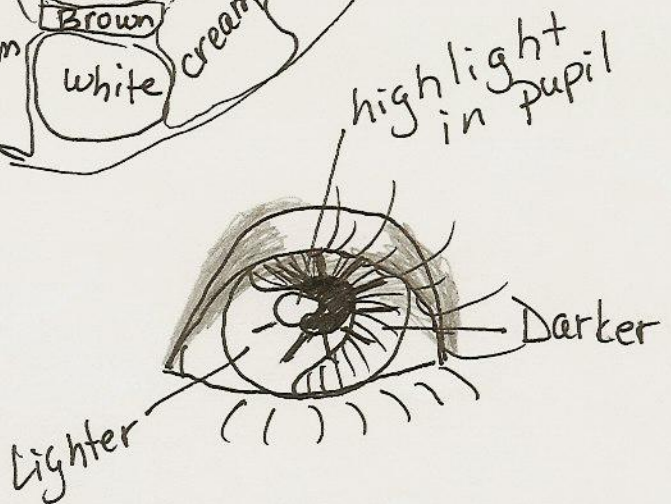 Brown
m
white
cream
highlight
in pupil
Darker
Lighter